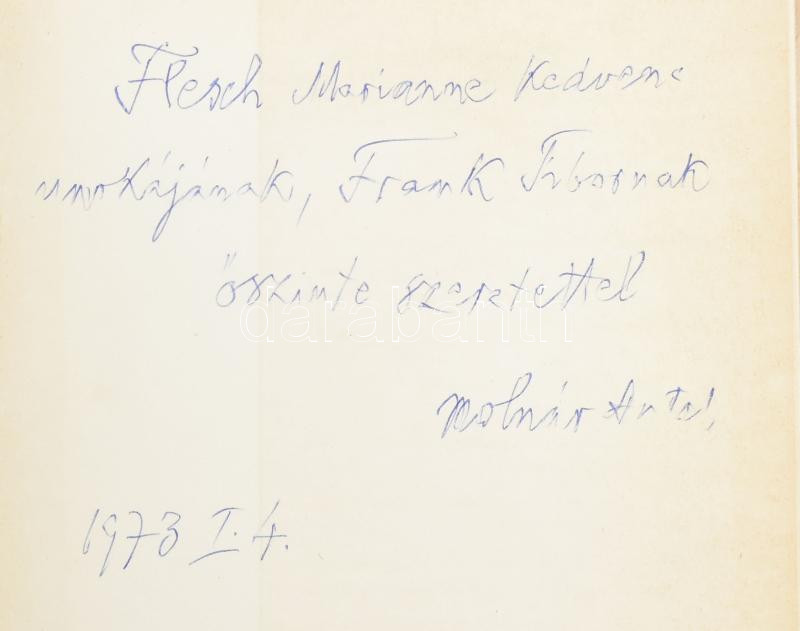 Flesch Marianne Kedvenc
unokájának, Frank Tibornak
őszinte szeretettel
darabanth
Molnár Antal
1973 I. 4.